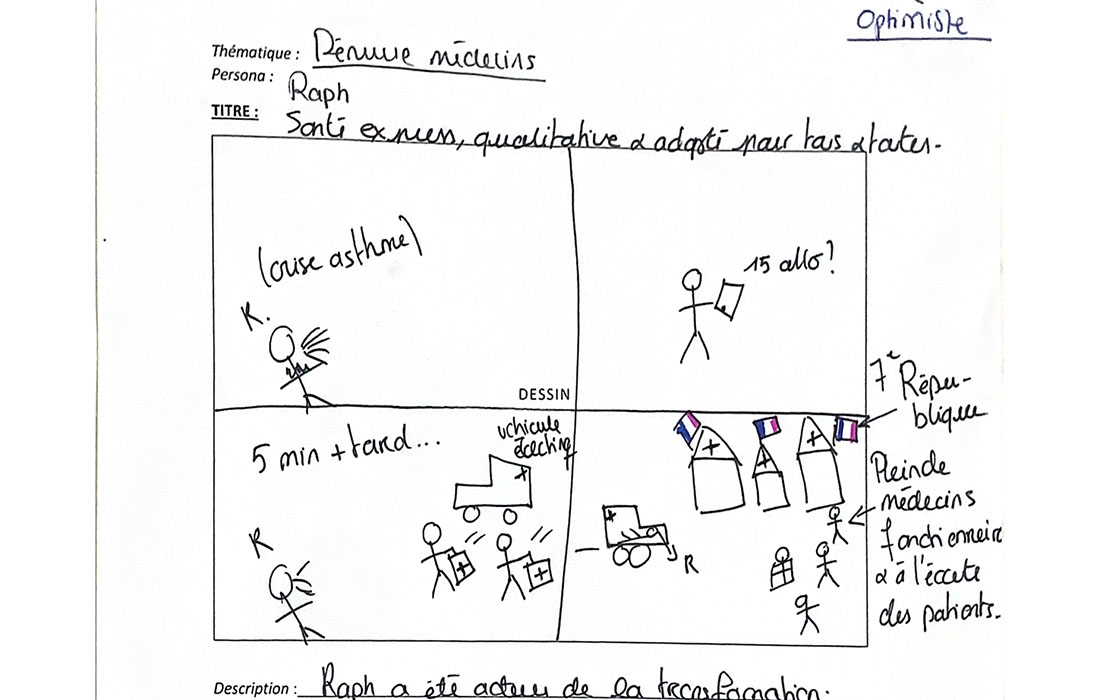 Optimiste
Thématique : Pénurie médecins
Persona : Raph
TITRE : Santé express, qualitative & adapté pour tous & toutes.
(crise asthme)
K.
15 allo?
DESSIN
5 min + tard...
véhicule
R
R
+
+
+
+
+
+
+
7e Répu-
blique
Plein de
médecins
fonctionnaire
& à l'écoute
des patients.
Description : Raph a été acteur de la transformation.